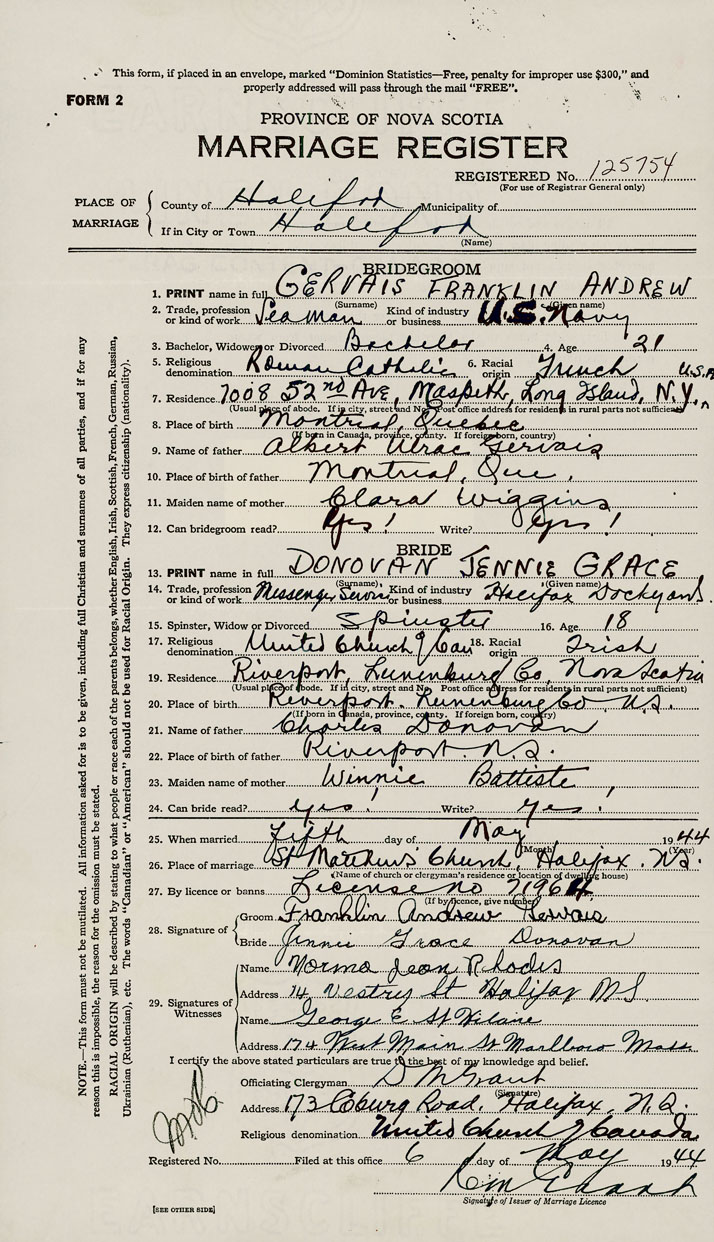 This form, if placed in an envelope, marked "Dominion Statistics—Free, penalty for improper use $300," and
properly addressed will pass through the mail "FREE".
FORM 2
PROVINCE OF NOVA SCOTIA
MARRIAGE REGISTER
REGISTERED No. 125754
(For use of Registrar General only)
PLACE OF MARRIAGE
County of Halifax Municipality of
If in City or Town Halifax
(Name)
BRIDEGROOM
1. PRINT name in full GERVAIS FRANKLIN ANDREW
(Surname) (Given name)
2. Trade, profession or kind of work Seaman Kind of industry or business U.S. Navy
3. Bachelor, Widower or Divorced Bachelor 4. Age 21
5. Religious denomination Roman Catholic 6. Racial origin French
7. Residence 7008 52nd Ave, Maspeth, Long Island, N.Y., U.S.A
(Usual place of abode. If in city, street and No. Post office address for residents in rural parts not sufficient)
8. Place of birth Montrial, Quebec
(If born in Canada, province, county. If foreign born, country)
9. Name of father Albert Gervais
10. Place of birth of father Montrial, Que.
11. Maiden name of mother Clara Wiggins
12. Can bridegroom read? Yes! Write? Yes!
BRIDE
13. PRINT name in full DONOVAN JENNIE GRACE
(Surname) (Given name)
14. Trade, profession or kind of work Messenger Service Kind of industry or business Halifax Dockyard.
15. Spinster, Widow or Divorced Spinster 16. Age 18
17. Religious denomination United Church of Can 18. Racial origin Irish
19. Residence Riverport, Lunenburg Co, Nova Scotia
(Usual place of abode. If in city, street and No. Post office address for residents in rural parts not sufficient)
20. Place of birth Riverport. Lunenburg Co N.S.
(If born in Canada, province, county. If foreign born, country)
21. Name of father Charles Donovan
22. Place of birth of father Riverport. N.S.
23. Maiden name of mother Winnie Battiste
24. Can bride read? Yes! Write? Yes!
25. When married Fifth day of May 1944
(Month) (Year)
26. Place of marriage St Matthews Church, Halifax. N.S.
(Name of church or clergyman's residence or location of dwelling house)
27. By licence or banns License no 71964
(If by licence, give number)
28. Signature of
Groom Franklin Andrew Gervais
Bride Jennie Grace Donovan
29. Signatures of Witnesses
Name Norma Jean Rhodes
Address 14 Vestry St Halifax N.S.
Name George E St Hilaire
Address 174 West Main St Marlboro Mass
I certify the above stated particulars are true to the best of my knowledge and belief.
Officiating Clergyman D M Grant
(Signature)
Address 173 Coburg Road. Halifax, N.S.
Religious denomination United Church of Canada
Registered No. Filed at this office 6 day of May 1944
Signature of Issuer of Marriage Licence
[SEE OTHER SIDE]
NOTE.—This form must not be mutilated. All information asked for is to be given, including full Christian and surnames of all parties, and if for any
reason this is impossible, the reason for the omission must be stated.
RACIAL ORIGIN will be described by stating to what people or race each of the parents belongs, whether English, Irish, Scottish, French, German, Russian,
Ukrainian (Ruthenian), etc. The words "Canadian" or "American" should not be used for Racial Origin. They express citizenship (nationality).